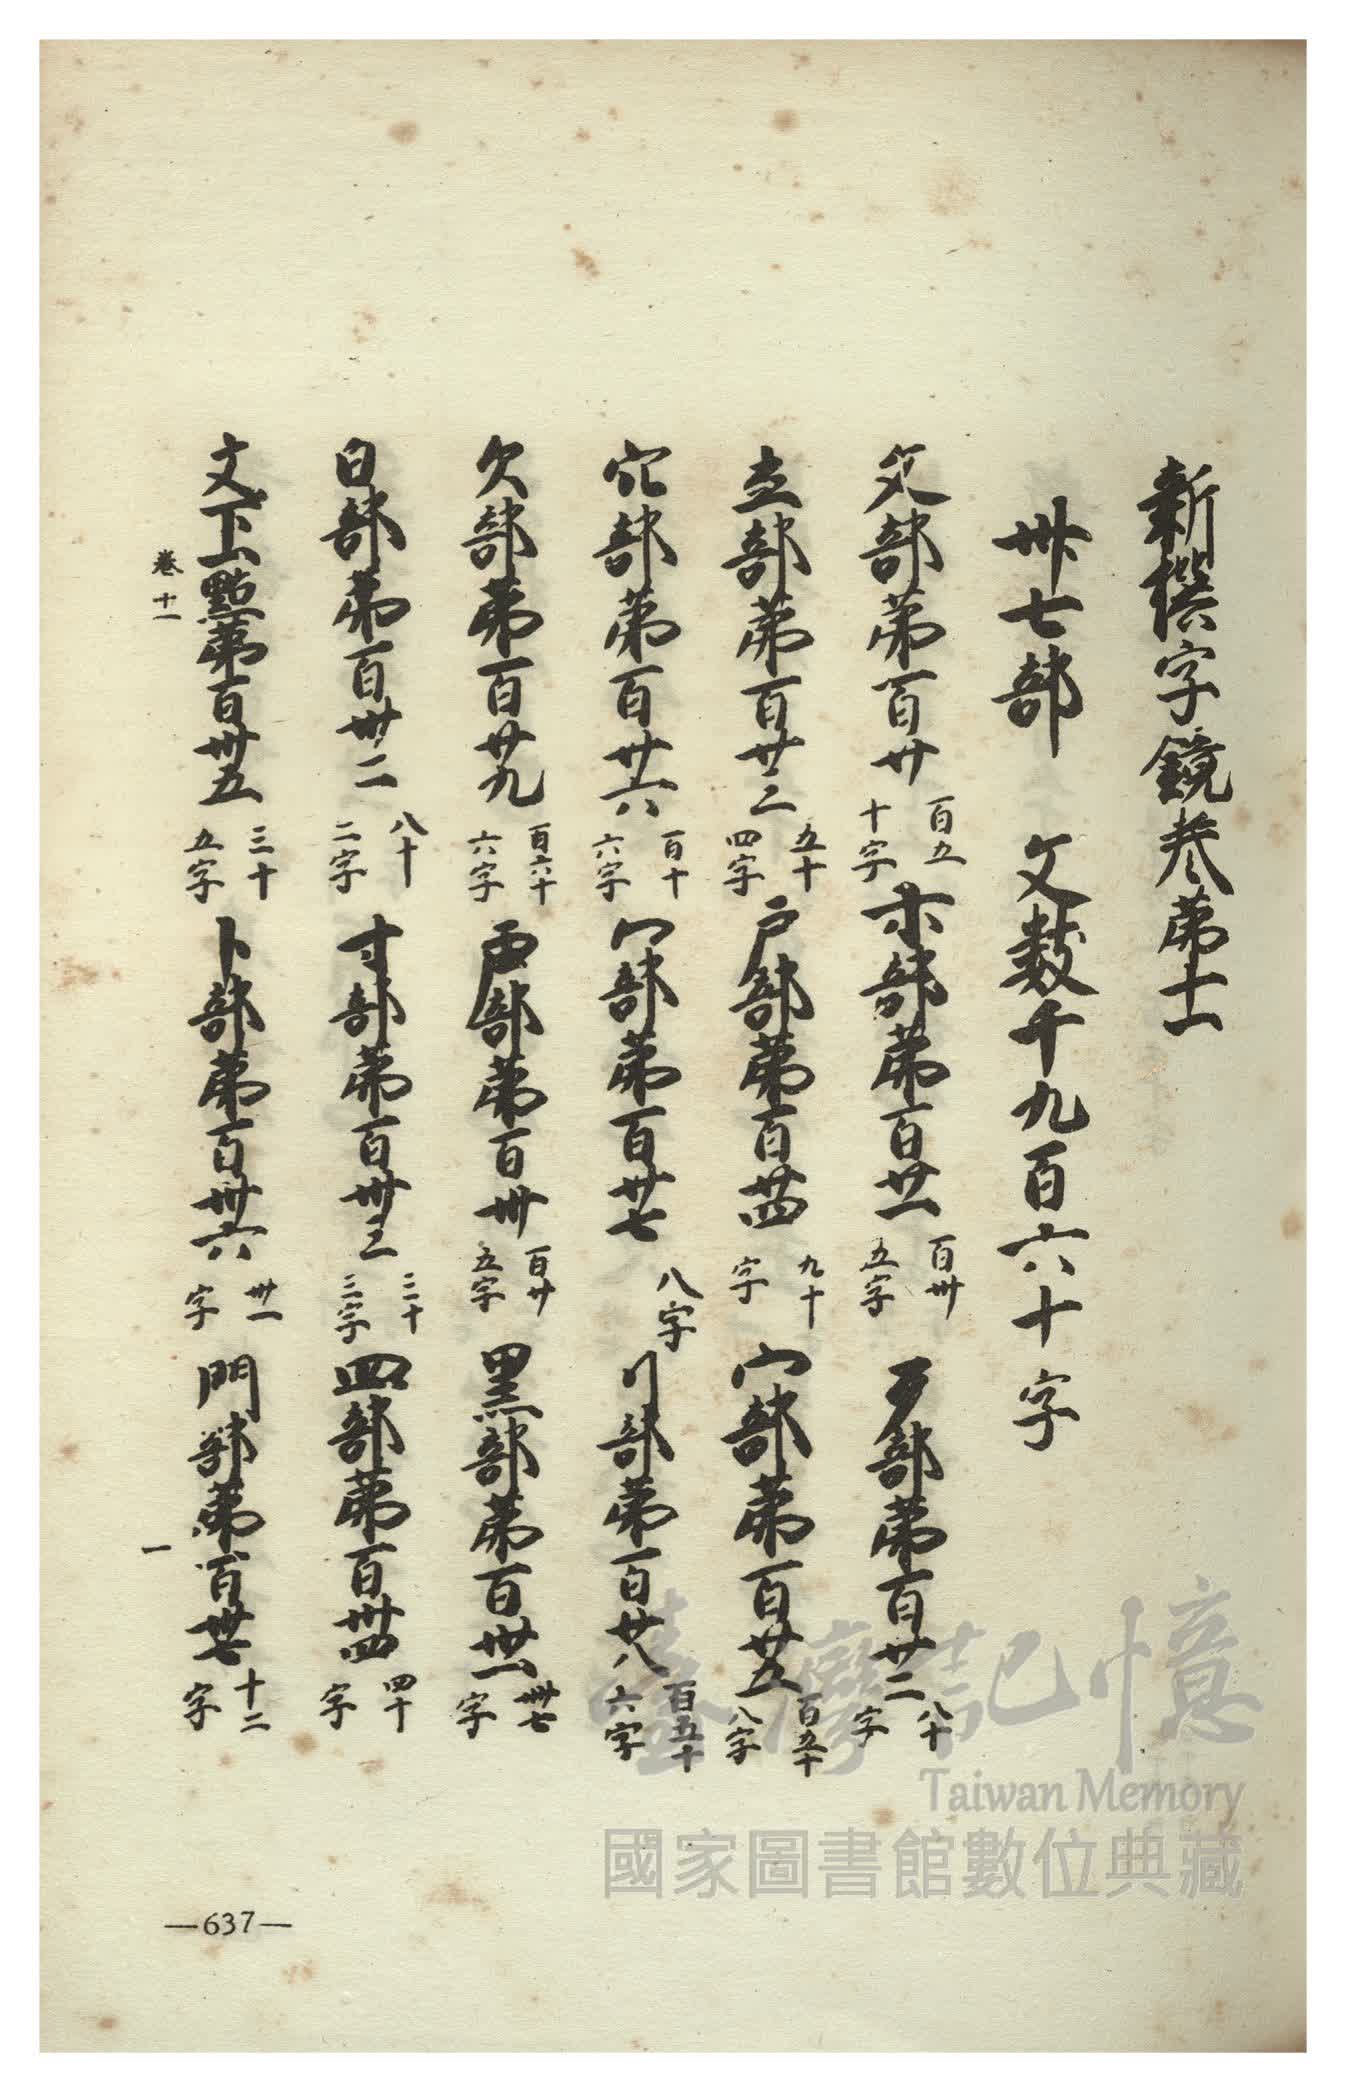 新撰字鏡卷第十一
卅七部 文數千九百六十字
攵部第百廿 百五十字 示部第百廿一 百卅五字 歹部第百廿二 八十字
立部第百廿三 五十四字 戸部第百廿四 九十字 宀部第百廿五 百五十八字
穴部第百廿六 百十六字 冖部第百廿七 八字 刂部第百廿八 百五十六字
欠部第百廿九 百六十六字 部第百卅 百廿五字 黑部第百卅一 卅七字
白部第百卅二 八十二字 寸部第百卅三 三十三字 四部第百卅四 四十字
文下一點第百卅五 三十五字 卜部第百卅六 廿一字 門部第百卅七 十二字
卷十一
一
—637—
臺灣記憶
Taiwan Memory
國家圖書館數位典藏